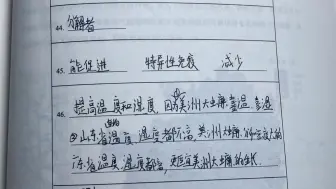 44. 分解者
45. 能促进 特异性免疫 减少
46. 提高温度和湿度,因为美洲大蠊喜温、喜湿
山东省温度、湿度都不高,美洲大蠊
广东省温度、湿度都高,更适宜美洲大蠊的生长